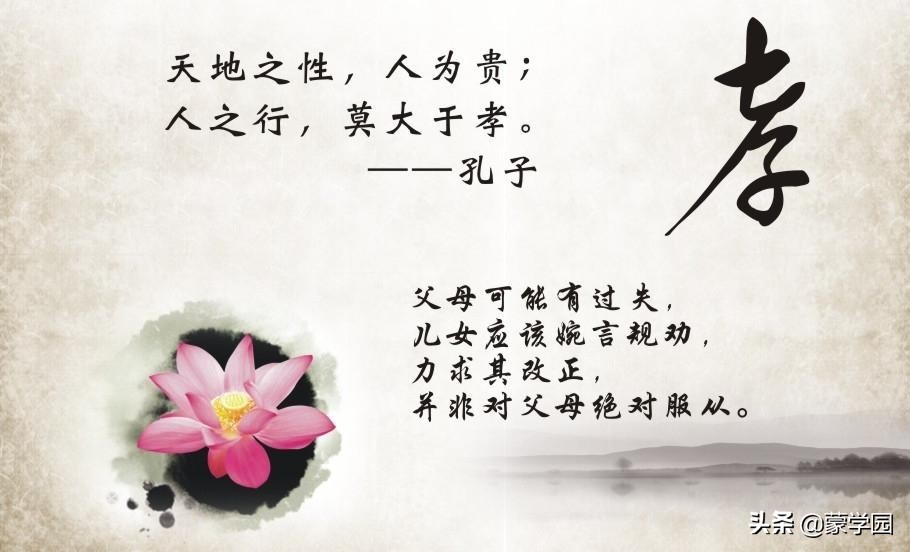 天地之性，人为贵；
人之行，莫大于孝。
——孔子
孝
父母可能有过失，
儿女应该婉言规劝，
力求其改正，
并非对父母绝对服从。
头条 @蒙学园